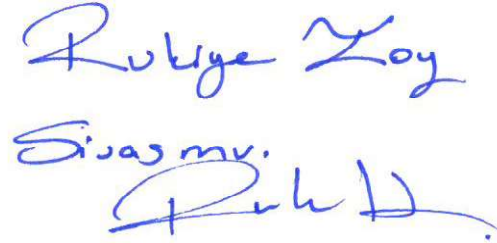 Rukiye Toy
Sivas mv.